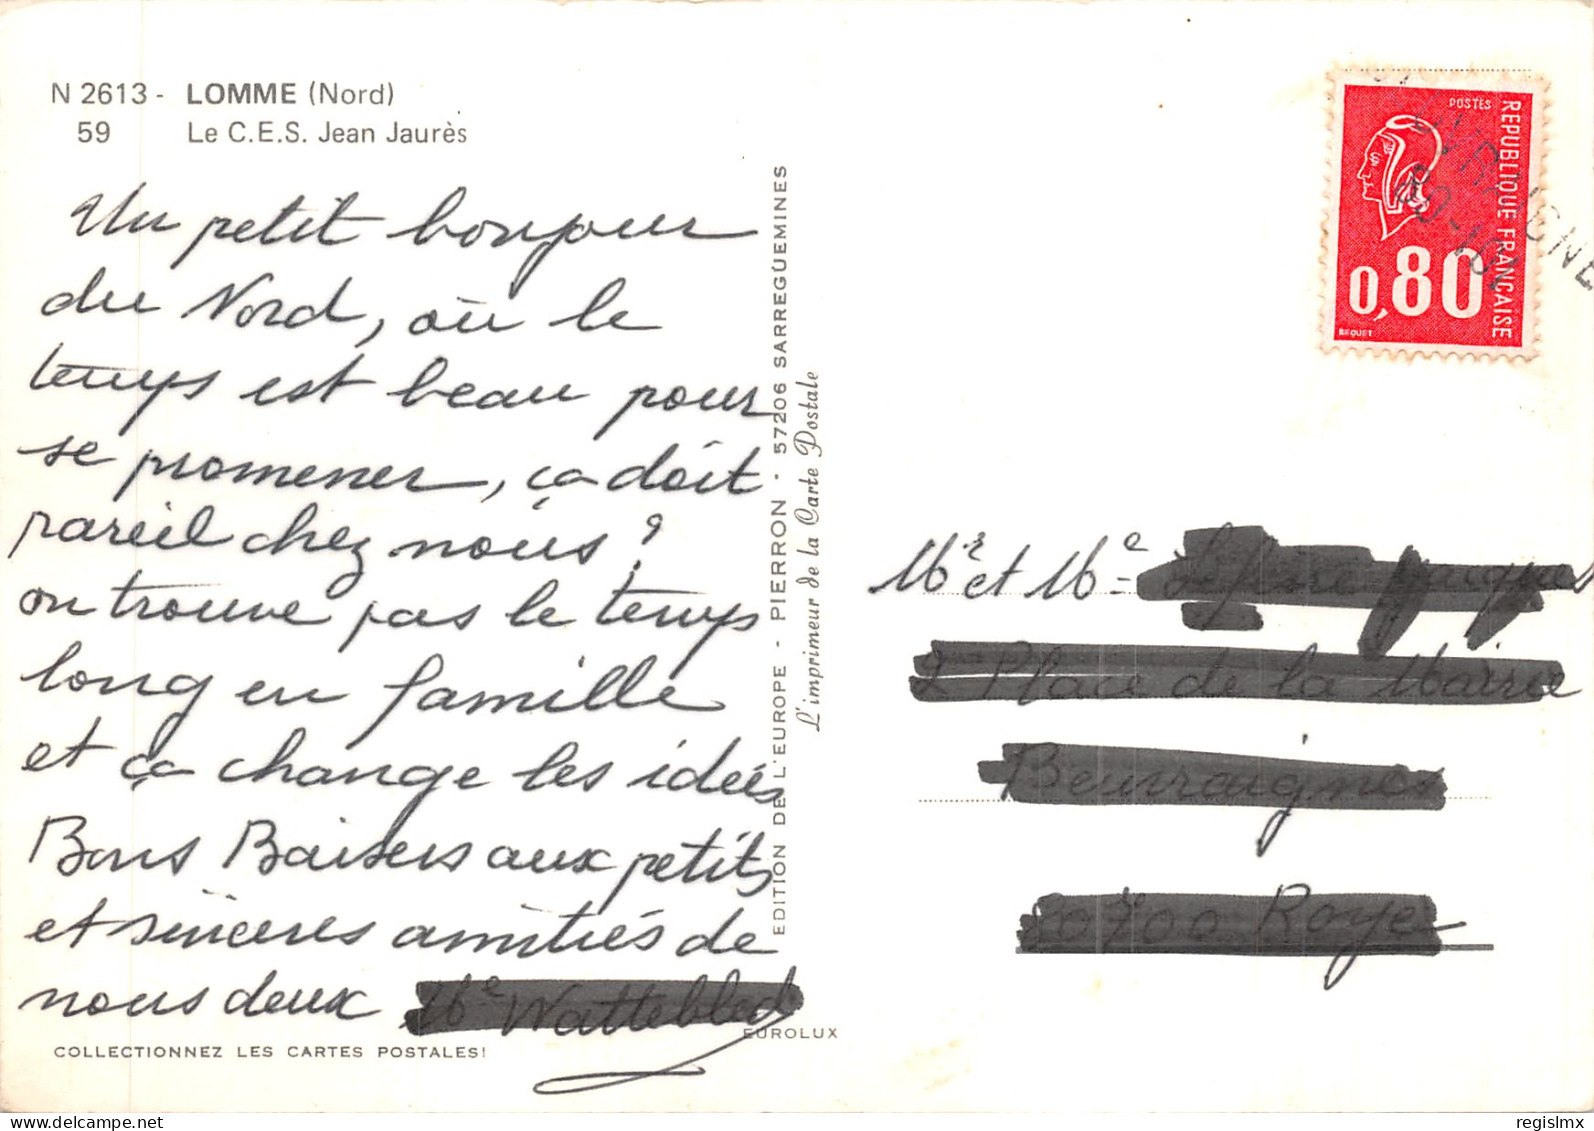 N 2613 - LOMME (Nord)
59 Le C.E.S. Jean Jaurès
Un petit bonjour
du Nord, où le
temps est beau pour
se promener, ça doit
pareil chez nous ?
on trouve pas le temps
long en famille
et ça change les idées
Bons Baisers aux petits
et sincères amitiés de
nous deux
COLLECTIONNEZ LES CARTES POSTALES!
EDITION DE L'EUROPE - PIERRON - 57206 SARREGUEMINES
L'imprimeur de la Carte Postale
EUROLUX
POSTES
REPUBLIQUE FRANÇAISE
0,80
BEQUET
Mr et Me
regislmx